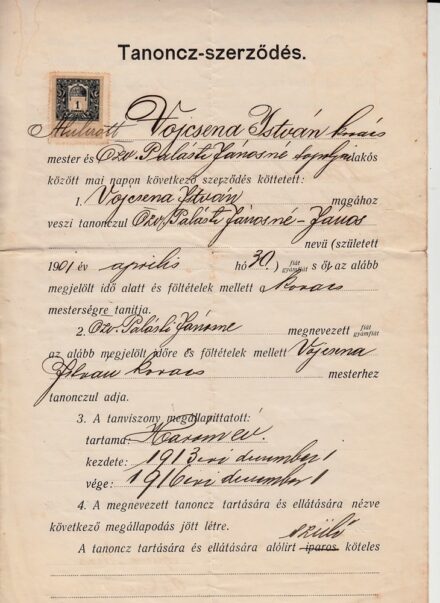 Tanoncz-szerződés.
1
Alulirott Vojcsena István kovács
mester és Özv. Palásti Jánosné topolyai lakós
között mai napon következő szerződés köttetett:
1. Vojcsena István magához
veszi tanonczul Özv. Palásti Jánosné - János
nevü (született
1901 év április hó 30.) fiát gyámfiát s őt az alább
megjelölt idő alatt és föltételek mellett kovács
mesterségre tanítja.
2. Özv. Palásti Jánosné megnevezett fiát gyámfiát
az alább megjelölt időre és föltételek mellett Vojcsena
István kovács mesterhez
tanonczul adja.
3. A tanviszony megállapíttatott:
tartama: Három év.
kezdete: 1913 évi december 1
vége: 1916 évi december 1
4. A megnevezett tanoncz tartására és ellátására nézve
következő megállapodás jött létre.
szülő
A tanoncz tartására és ellátására alólirt iparos köteles